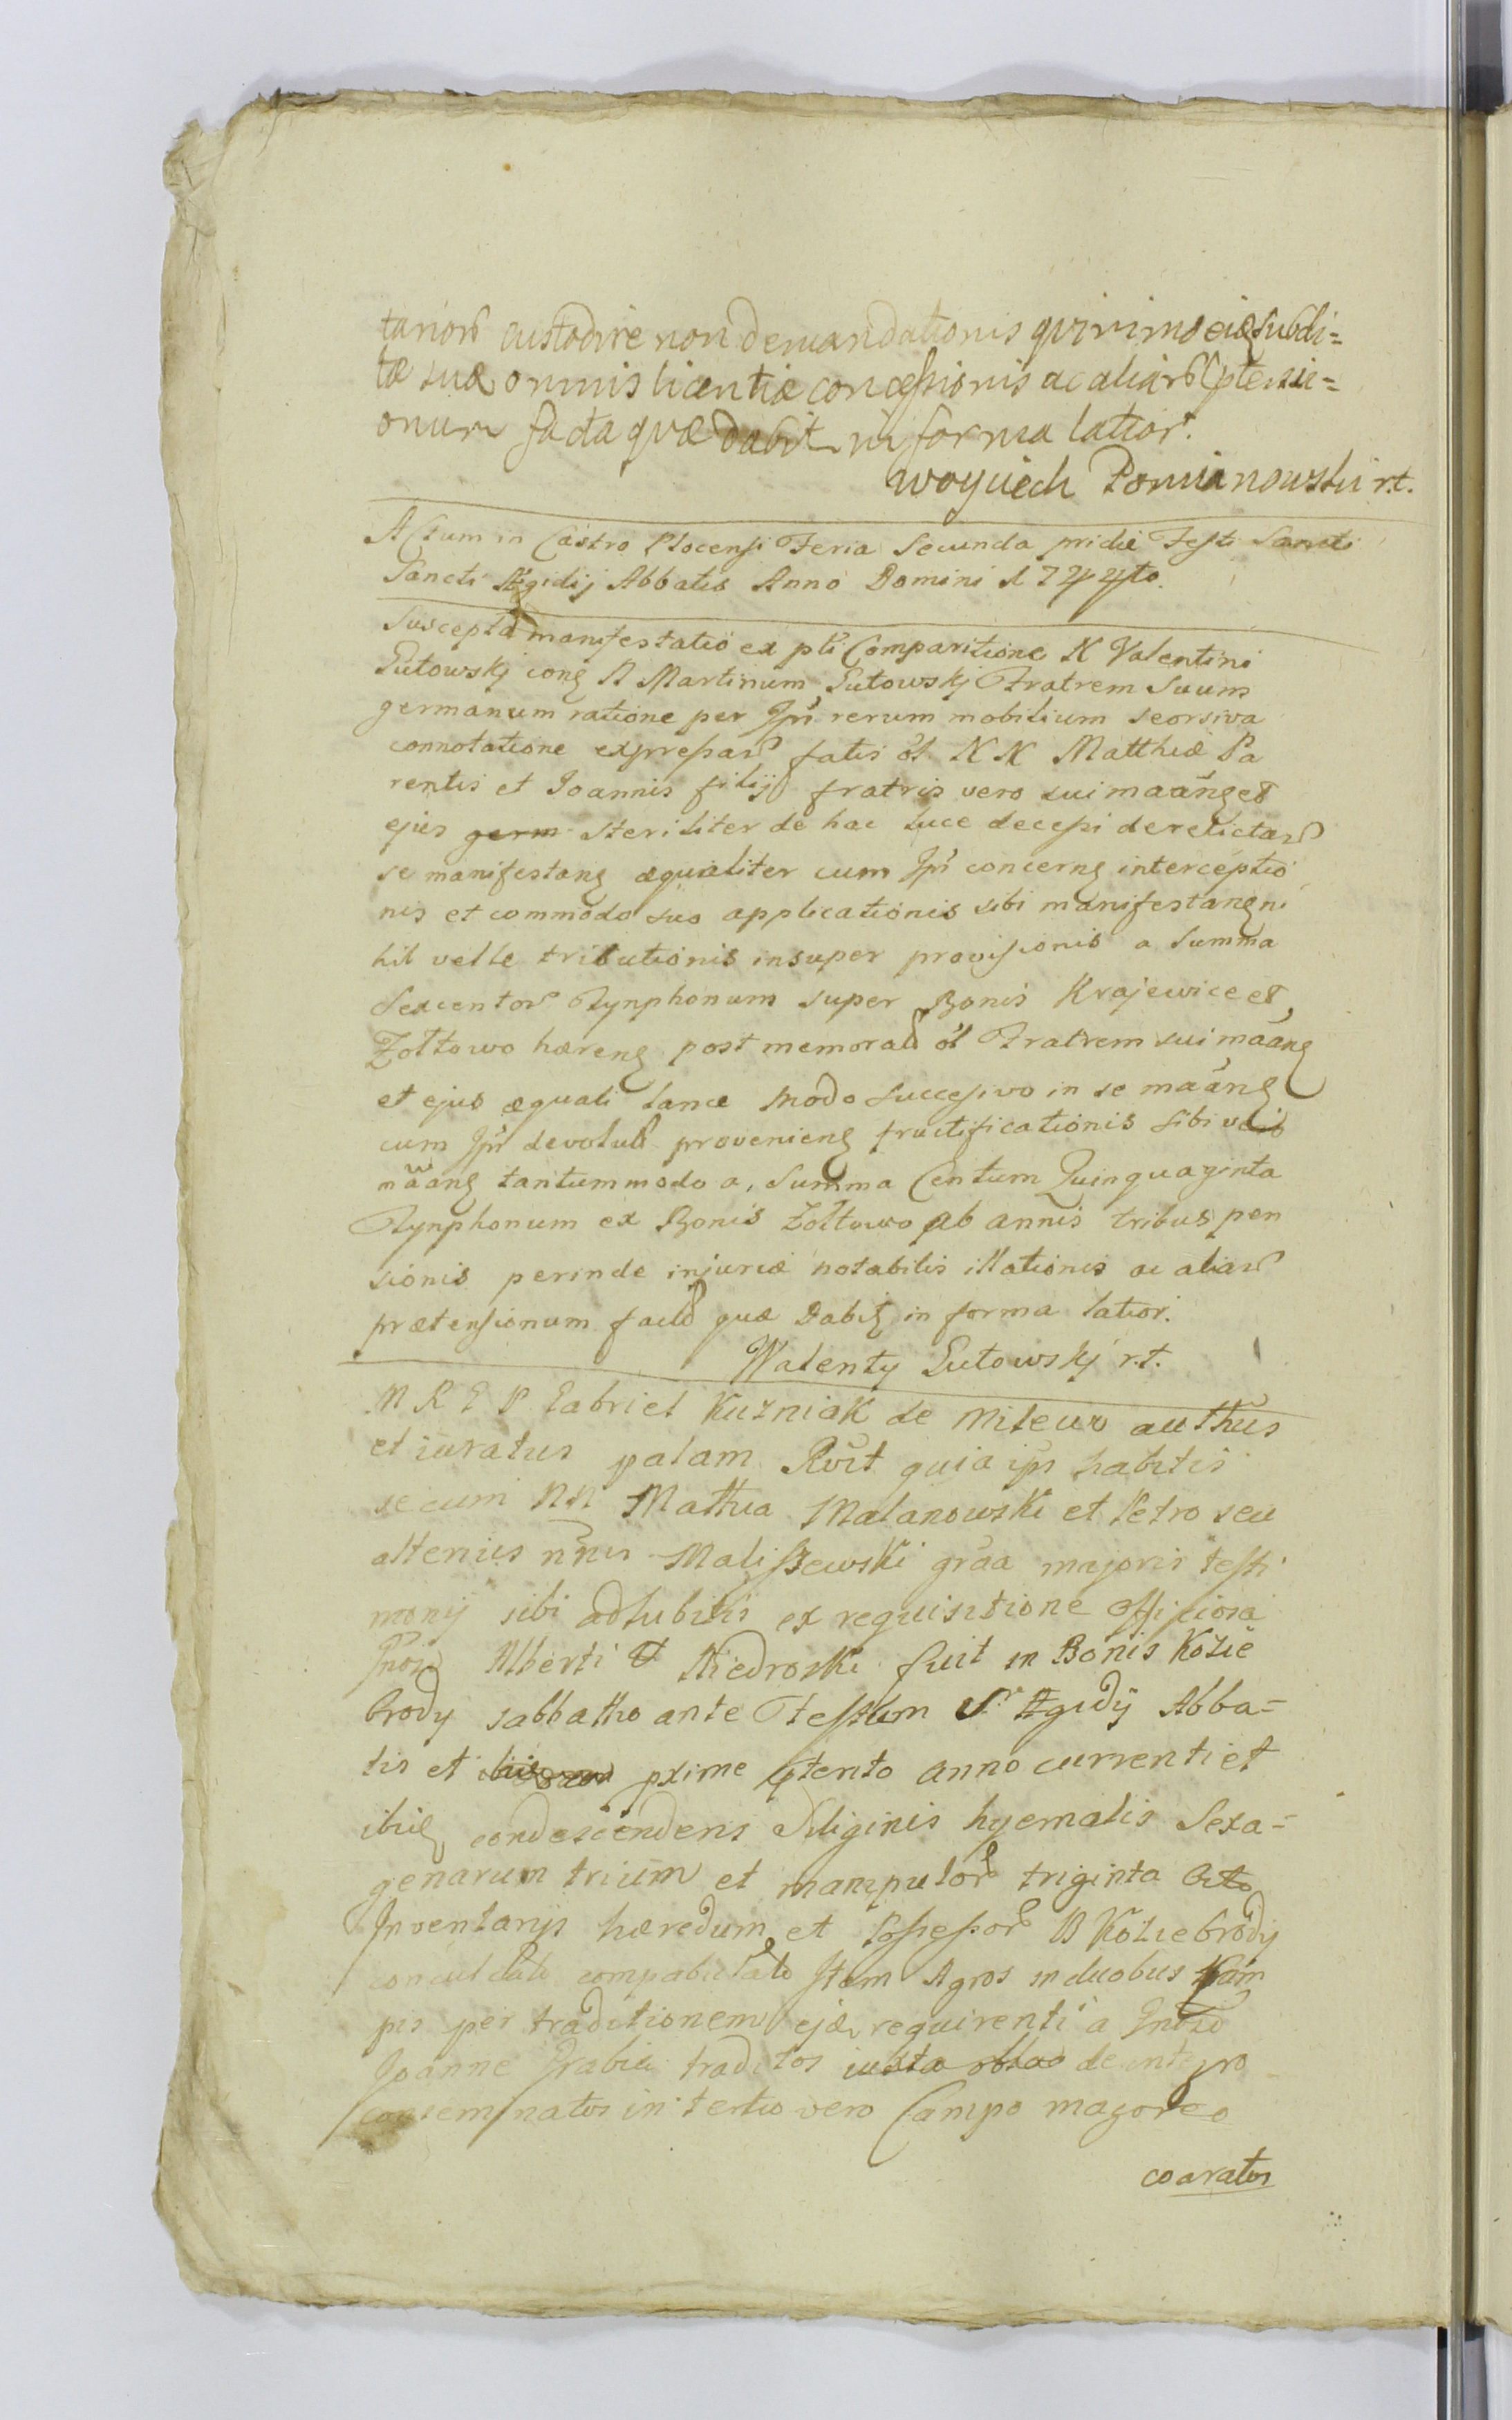 tarior custodire non demandationis qvinimo ejq subdi=
tæ suæ omnis licentiæ concessionis ac aliar ptensi=
onum facta qvæ dabit in forma latior.
Woyciech Pomianowski r.t.
Actum in Castro Plocensi Feria Secunda pridie Festi Sancti
Sancti Ægidij Abbatis Anno Domini 1744to.
Suscepta manifestatio ex pti Comparitione N Valentini
Lutowskj cong N Martinum Lutowskj Fratrem Suum
germanum ratione per Ipm rerum mobilium seorsiva
connotatione expressar fatis ol N N Matthiæ Pa
rentis et Joannis filij fratris vero sui maang et
ejus germ steriliter de hac luce decessi derelictar
se manifestang æqualiter cum Ipo concerng interceptio
nis et commodo suo applicationis sibi manifestang ni
hil velle tributionis insuper provisionis a Summa
Sexcentor Tynphonum super Bonis Krajewice et
Zołtowo hæreng post memorat ol Fratrem sui maang
et ejus æquali lance modo successivo in se maang
cum Ipo devolut provenieng fructificationis sibi vero
maang tantummodo a, Summa Centum Quinquaginta
Tynphonum ex Bonis Zołtowo ab annis tribus pen
sionis perinde injuriæ notabilis illationis ac aliar
prætensionum facto quæ Dabit in forma latior.
Walenty Lutowskj r.t.
M R G P Gabriel Kuzniak de Milewo authus
et iuratus palam Rvit quia ips habitis
secum NN Matthia Malanowski et Petro seu
alterius nnis Maliszewski graa majoris testi
monij sibi adhibitis ex requisitione officiosa
Alberti Niedroski fuit in Bonis Kozie
brody sabbatho ante Festum Sti Ægidij Abba=
tis et pxime pterito anno currenti et
ibiq condescendens siliginis hyemalis Sexa=
genarum trium et manipulor triginta octo
Inventarijs hæredum et possessor B Koziebrody
conculcato compabulato Item Agros in duobus Cam
pis per traditionem ejd requirenti a
Joanne Grabia traditos iuxta de integro
conseminatos in tertio vero Campo
coaratos